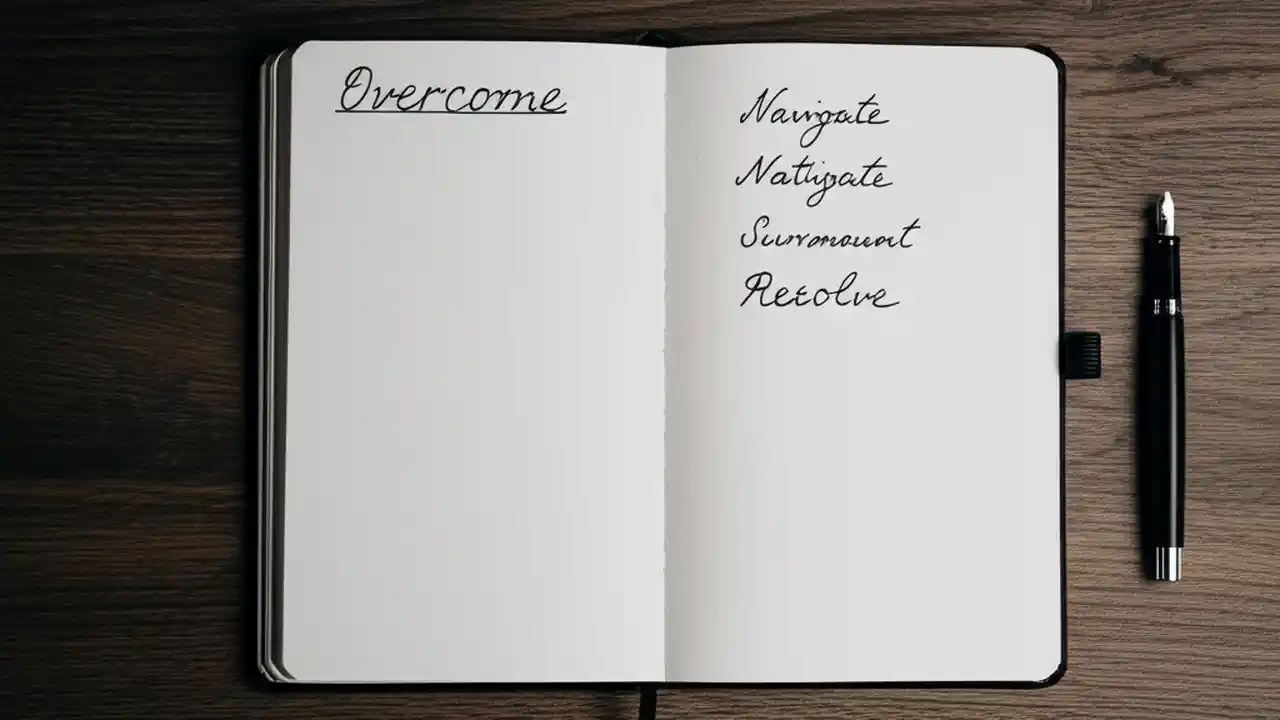 Overcome
Navigate
Nathigate
Surmount
Resolve